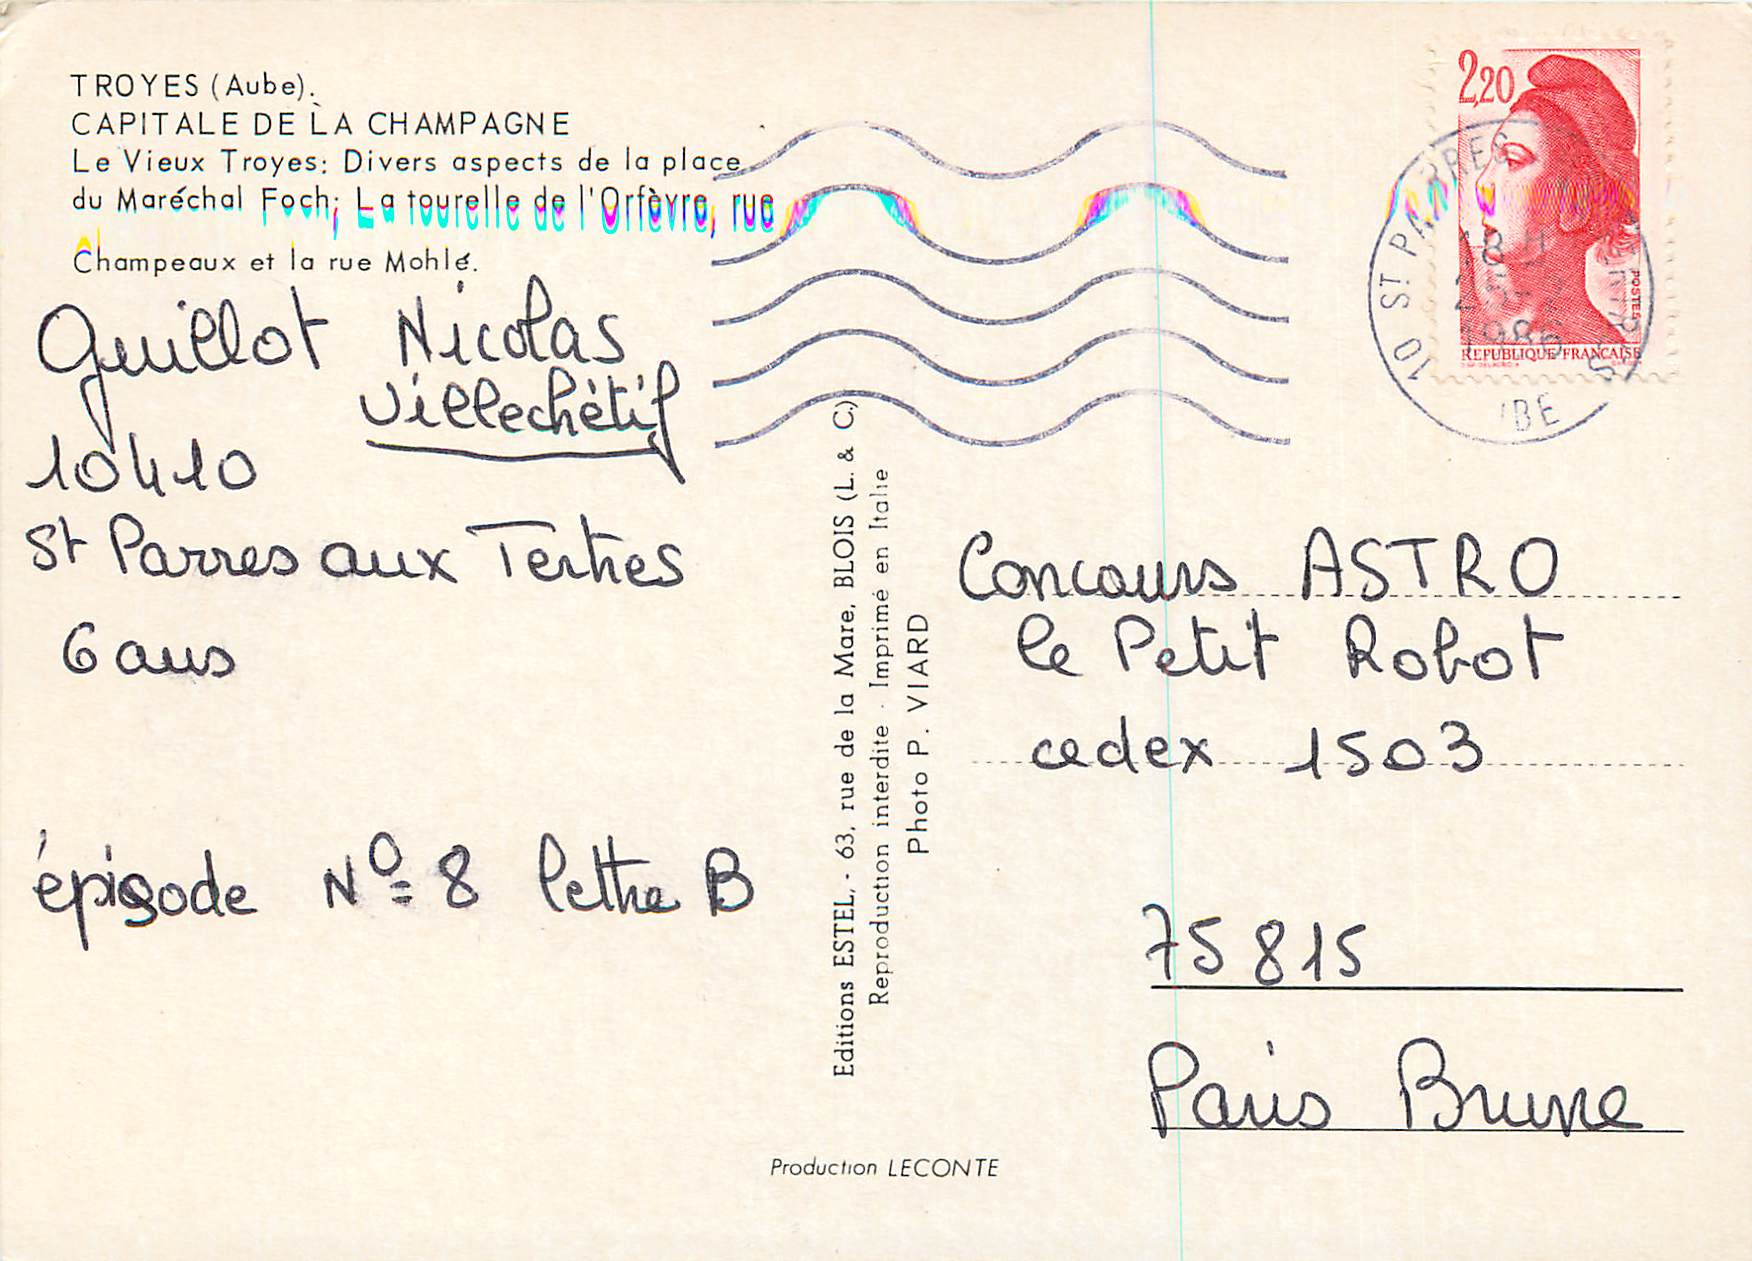 TROYES (Aube).
CAPITALE DE LA CHAMPAGNE
Le Vieux Troyes: Divers aspects de la place
du Maréchal Foch; La tourelle de l'Orfèvre, rue
Champeaux et la rue Mohlé.
Guillot Nicolas
Villechétif
10410
St Parres aux Tertres
6 ans
épisode N° 8 lettre B
Editions ESTEL, - 63, rue de la Mare, BLOIS (L. & C)
Reproduction interdite - Imprimé en Italie
Photo P. VIARD
Production LECONTE
2,20
POSTES
REPUBLIQUE FRANÇAISE
10 ST PARRES
18 H
1986
Concours ASTRO
le Petit Robot
cedex 1503
75815
Paris Brune